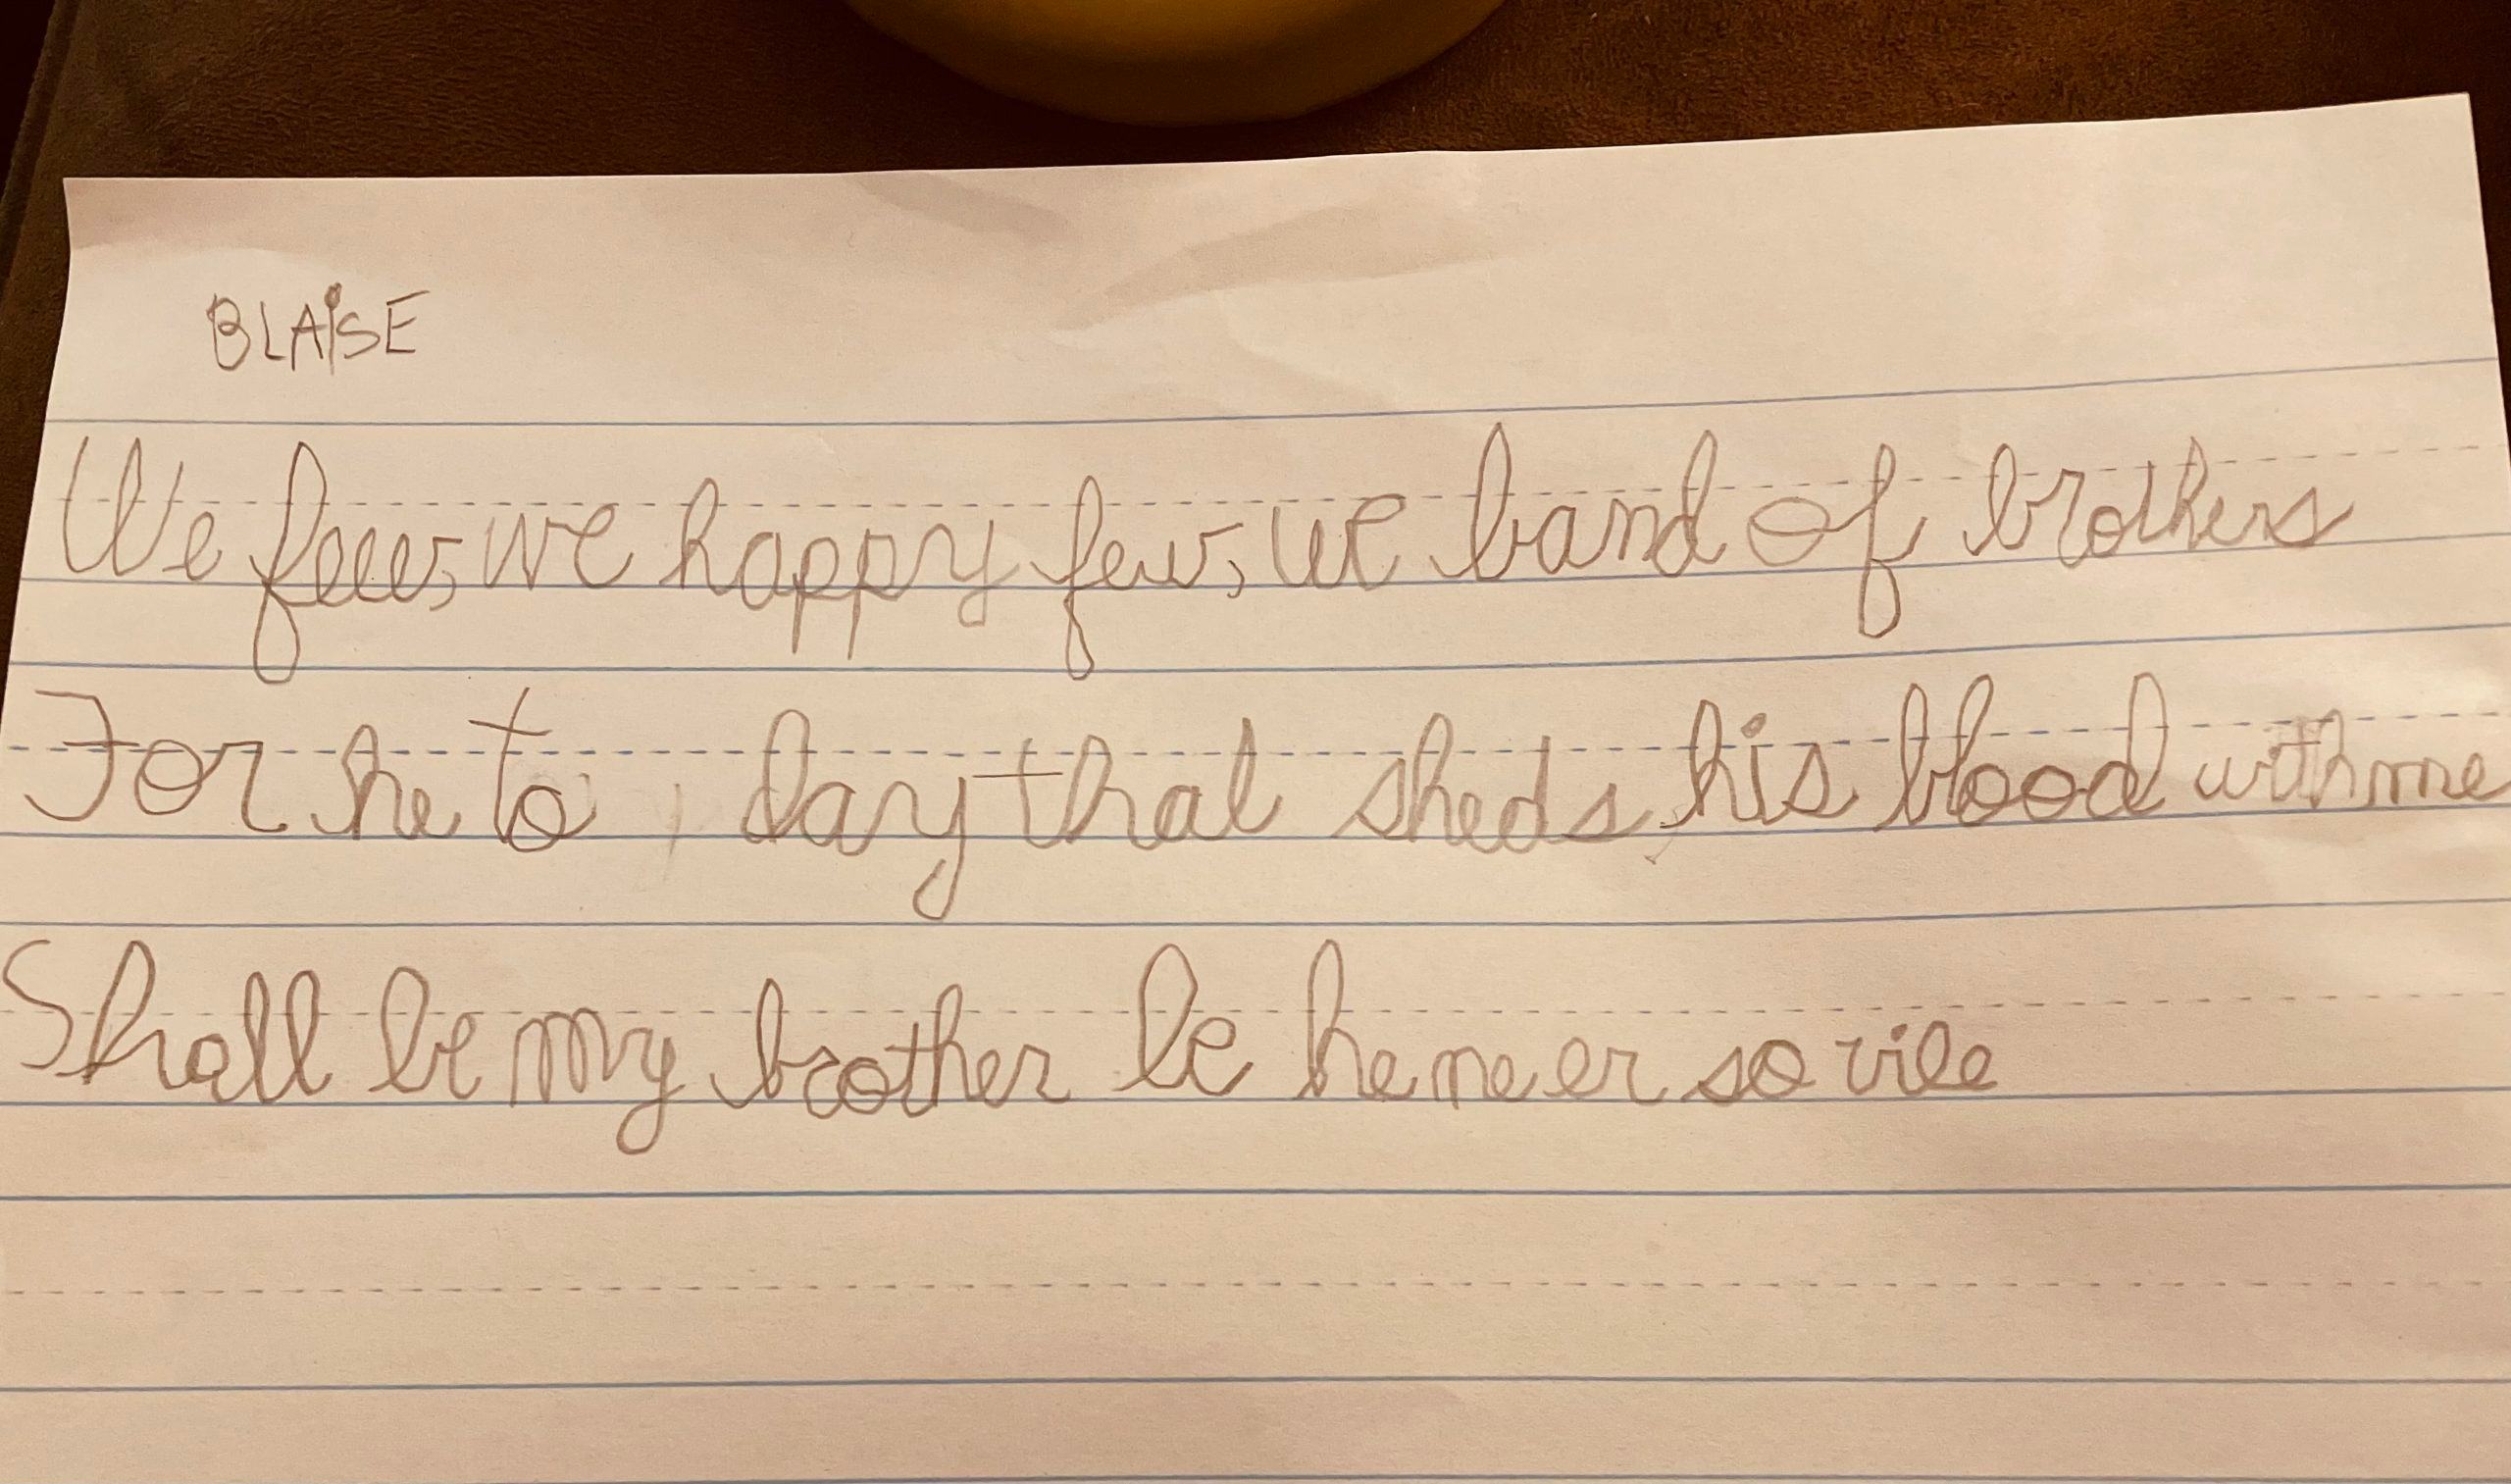 BLAiSE
We few, we happy few, we band of brothers
For he to day that sheds his blood with me
Shall be my brother be he ne er so vile